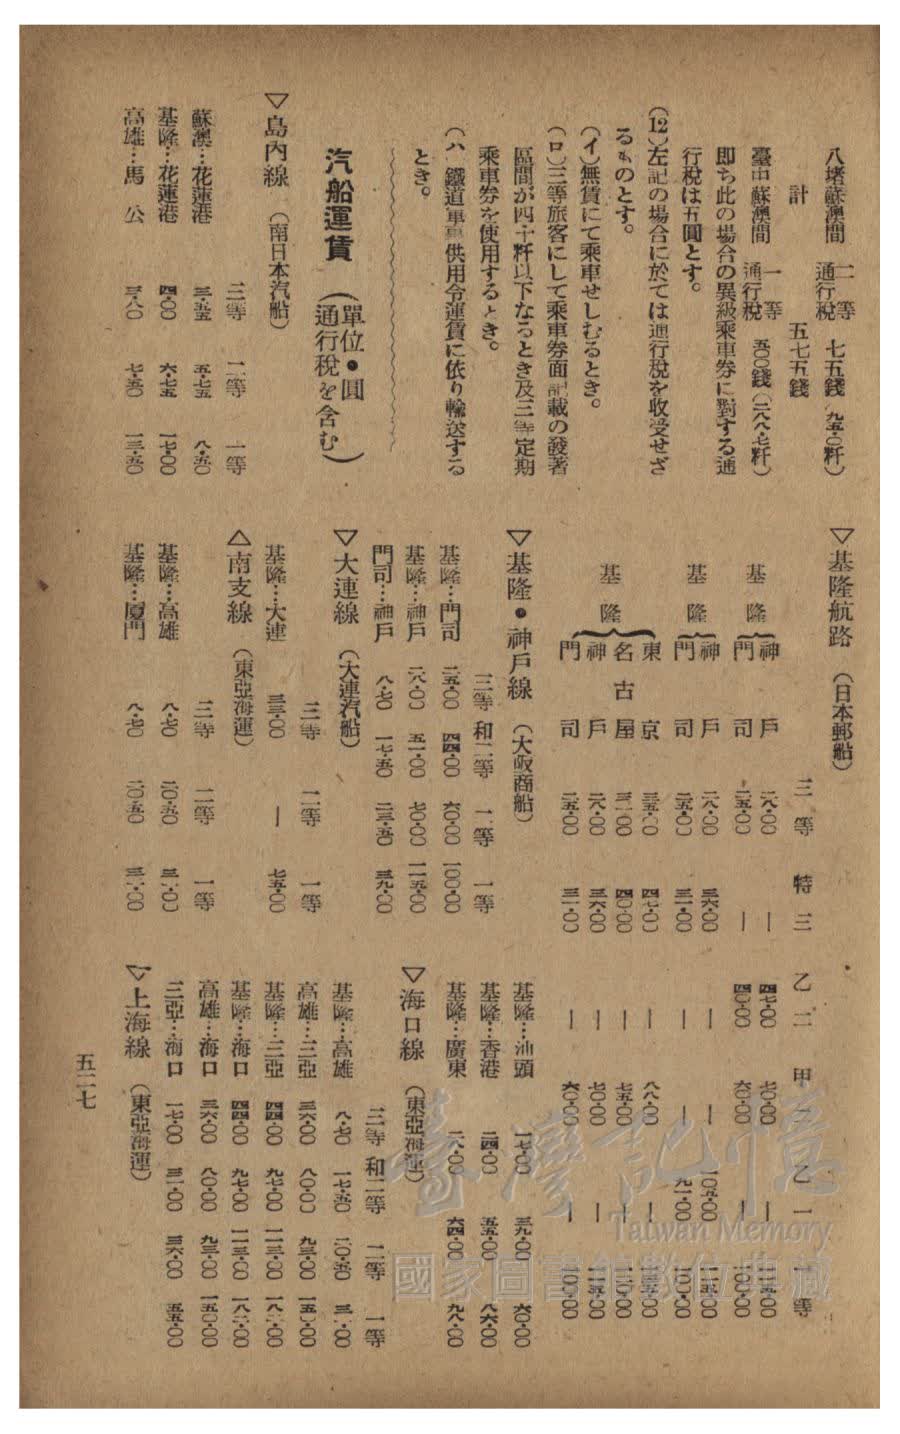 八堵蘇澳間 二等通行稅 七五錢(九五・〇粁)
計 五七五錢
臺中蘇澳間 一等通行稅 五〇〇錢(二八八・七粁)
卽ち此の場合の異級乘車券に對する通
行稅は五圓とす。
(12)左記の場合に於ては通行稅を收受せざ
るものとす。
(イ)無賃にて乘車せしむるとき。
(ロ)三等旅客にして乘車券面記載の發著
區間が四十粁以下なるとき及三等定期
乘車券を使用するとき。
(ハ)鐵道軍事供用令運賃に依り輸送する
とき。
汽船運賃 (單位・圓 通行稅を含む)
▽島內線 (南日本汽船)
三等 二等 一等
蘇澳…花蓮港 三・五五 五・七五 八・五〇
基隆…花蓮港 四・〇〇 六・七五 一七・〇〇
高雄…馬公 三・八〇 七・五〇 一三・五〇
▽基隆航路 (日本郵船)
三等 特三 乙二 甲二 乙一 一等
基隆 神戶 二八・〇〇 — 四七・〇〇 七〇・〇〇 —
門司 二五・〇〇 — 四〇・〇〇 六〇・〇〇 — 一〇〇・〇〇
基隆 神戶 二八・〇〇 三六・〇〇 — — 一〇五・〇〇
門司 二五・〇〇 三一・〇〇 — — 九一・〇〇 一〇〇・〇〇
基隆 東京 三五・〇〇 四七・〇〇 — 八八・〇〇 —
名古屋 三一・〇〇 四〇・〇〇 — 七五・〇〇 —
神戶 二八・〇〇 三六・〇〇 — 七〇・〇〇 —
門司 二五・〇〇 三一・〇〇 — 六〇・〇〇 — 一〇〇・〇〇
▽基隆・神戶線 (大阪商船)
三等 和二等 二等 一等
基隆…門司 二五・〇〇 四四・〇〇 六〇・〇〇 一〇〇・〇〇
基隆…神戶 二八・〇〇 五一・〇〇 七〇・〇〇 一一五・〇〇
門司…神戶 八・七〇 一七・五〇 二三・五〇 三九・〇〇
▽大連線 (大連汽船)
三等 二等 一等
基隆…大連 三三・〇〇 — 七五・〇〇
△南支線 (東亞海運)
三等 二等 一等
基隆…高雄 八・七〇 二〇・五〇 三一・〇〇
基隆…廈門 八・七〇 二〇・五〇 三一・〇〇
基隆…汕頭 一七・〇〇 三九・〇〇 六〇・〇〇
基隆…香港 二四・〇〇 五五・〇〇 八六・〇〇
基隆…廣東 二八・〇〇 六四・〇〇 九八・〇〇
▽海口線 (東亞海運)
三等 和二等 二等 一等
基隆…高雄 八・七〇 一七・五〇 二〇・五〇 三一・〇〇
高雄…三亞 三六・〇〇 八〇・〇〇 九三・〇〇 一五〇・〇〇
基隆…三亞 四四・〇〇 九七・〇〇 一一三・〇〇 一八一・〇〇
基隆…海口 四四・〇〇 九七・〇〇 一一三・〇〇 一八一・〇〇
高雄…海口 三六・〇〇 八〇・〇〇 九三・〇〇 一五〇・〇〇
三亞…海口 一七・〇〇 三一・〇〇 三六・〇〇 五五・〇〇
▽上海線 (東亞海運)
五二七
臺灣記憶
Taiwan Memory
國家圖書館數位典藏